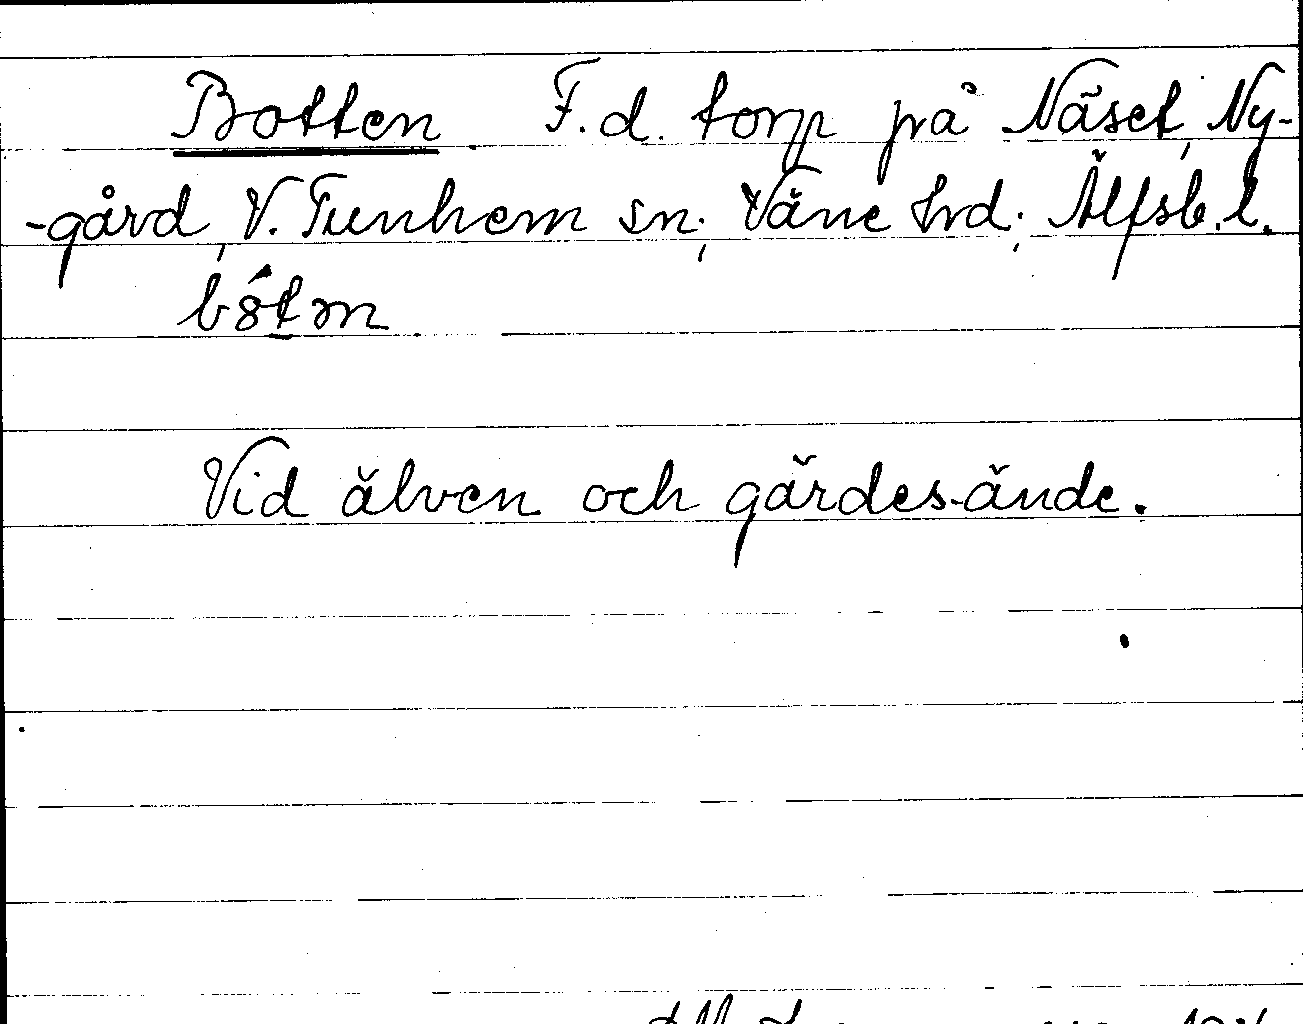 Botten F.d. torp på Näset, Ny-
-gård, V. Tunhem sn; Väne hrd; Älfsb. l.
Vid älven och gärdes-ände.